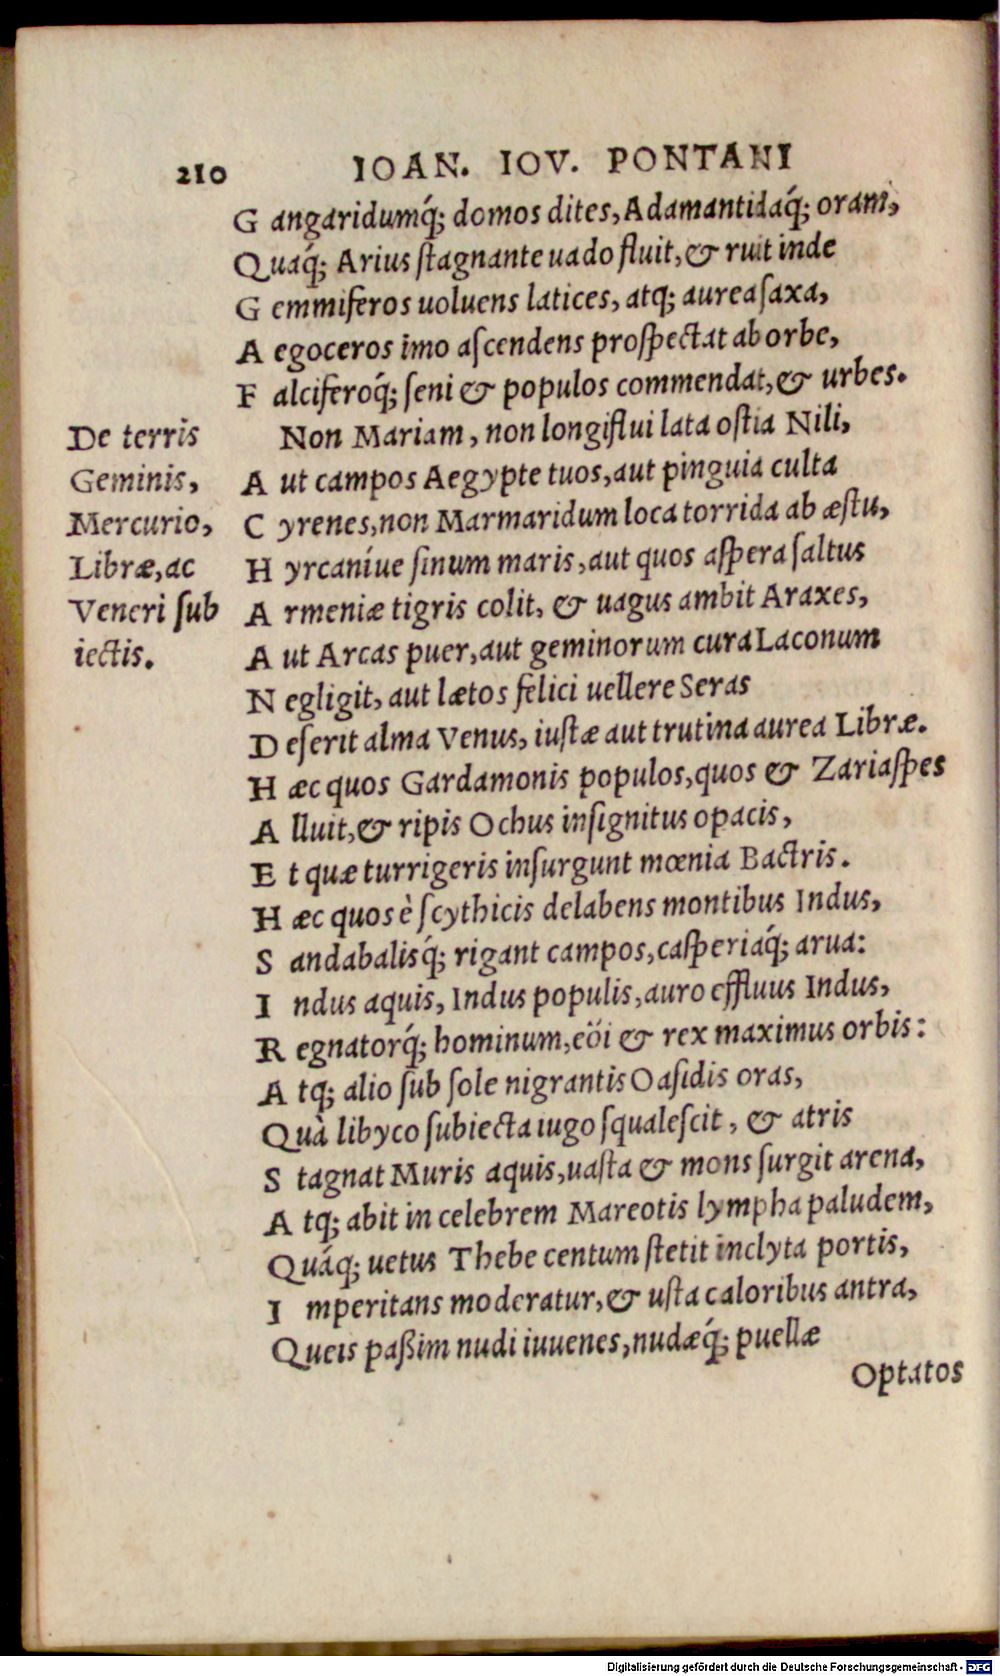 210 IOAN. IOV. PONTANI
G angaridumq́; domos dites, Adamantidaq́; oram,
Quaq́; Arius ſtagnante uado fluit, & ruit inde
G emmiferos uoluens latices, atq; aurea ſaxa,
A egoceros imo aſcendens proſpectat ab orbe,
F alciferoq́; ſeni & populos commendat, & urbes.
De terris
Geminis,
Mercurio,
Libræ, ac
Veneri ſub
iectis.
Non Mariam, non longiflui lata oſtia Nili,
A ut campos Aegypte tuos, aut pinguia culta
C yrenes, non Marmaridum loca torrida ab æſtu,
H yrcaníue ſinum maris, aut quos aſpera ſaltus
A rmeniæ tigris colit, & uagus ambit Araxes,
A ut Arcas puer, aut geminorum cura Laconum
N egligit, aut lætos felici uellere Seras
D eſerit alma Venus, iuſtæ aut trutina aurea Libræ.
H æc quos Gardamonis populos, quos & Zariaſpes
A lluit, & ripis Ochus inſignitus opacis,
E t quæ turrigeris inſurgunt mœnia Bactris.
H æc quos è ſcythicis delabens montibus Indus,
S andabalisq́; rigant campos, caſperiaq́; arua:
I ndus aquis, Indus populis, auro effluus Indus,
R egnatorq́; hominum, eöi & rex maximus orbis:
A tq; alio ſub ſole nigrantis Oaſidis oras,
Quà libyco ſubiecta iugo ſqualeſcit, & atris
S tagnat Muris aquis, uaſta & mons ſurgit arena,
A tq; abit in celebrem Mareotis lympha paludem,
Quáq; uetus Thebe centum ſtetit inclyta portis,
I mperitans moderatur, & uſta caloribus antra,
Queis paßim nudi iuuenes, nudæq́; puellæ
Optatos
Digitalisierung gefördert durch die Deutsche Forschungsgemeinschaft - DFG